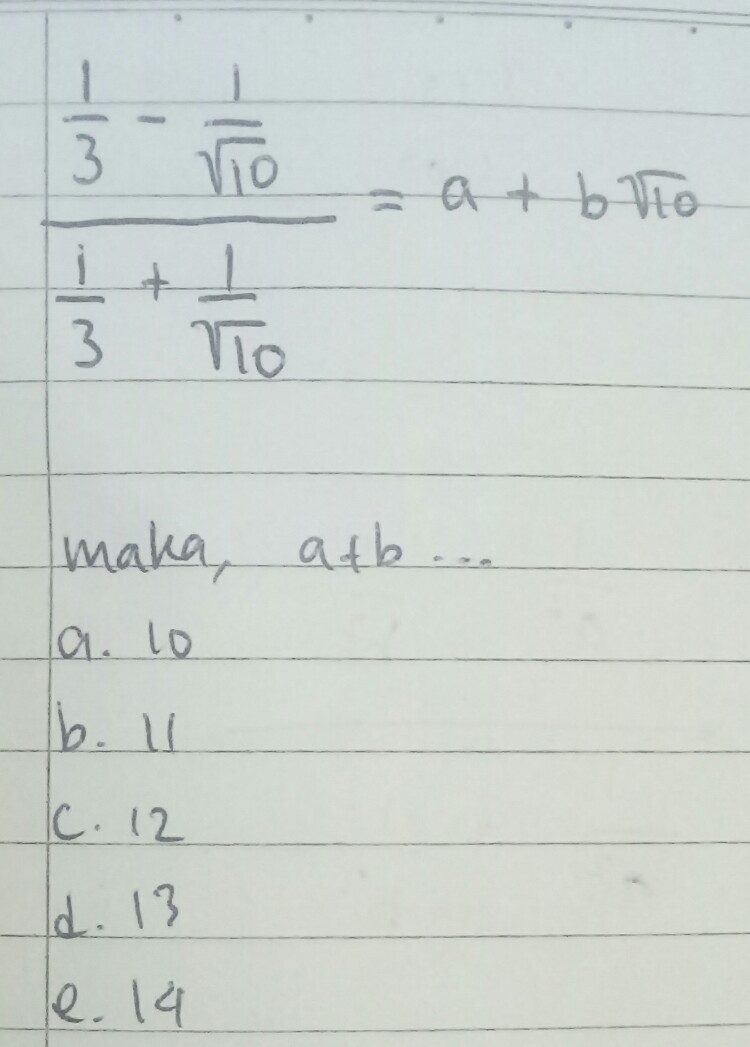 1/3 - 1/√10
= a + b√10
1/3 + 1/√10
maka, a+b ...
a. 10
b. 11
c. 12
d. 13
e. 14